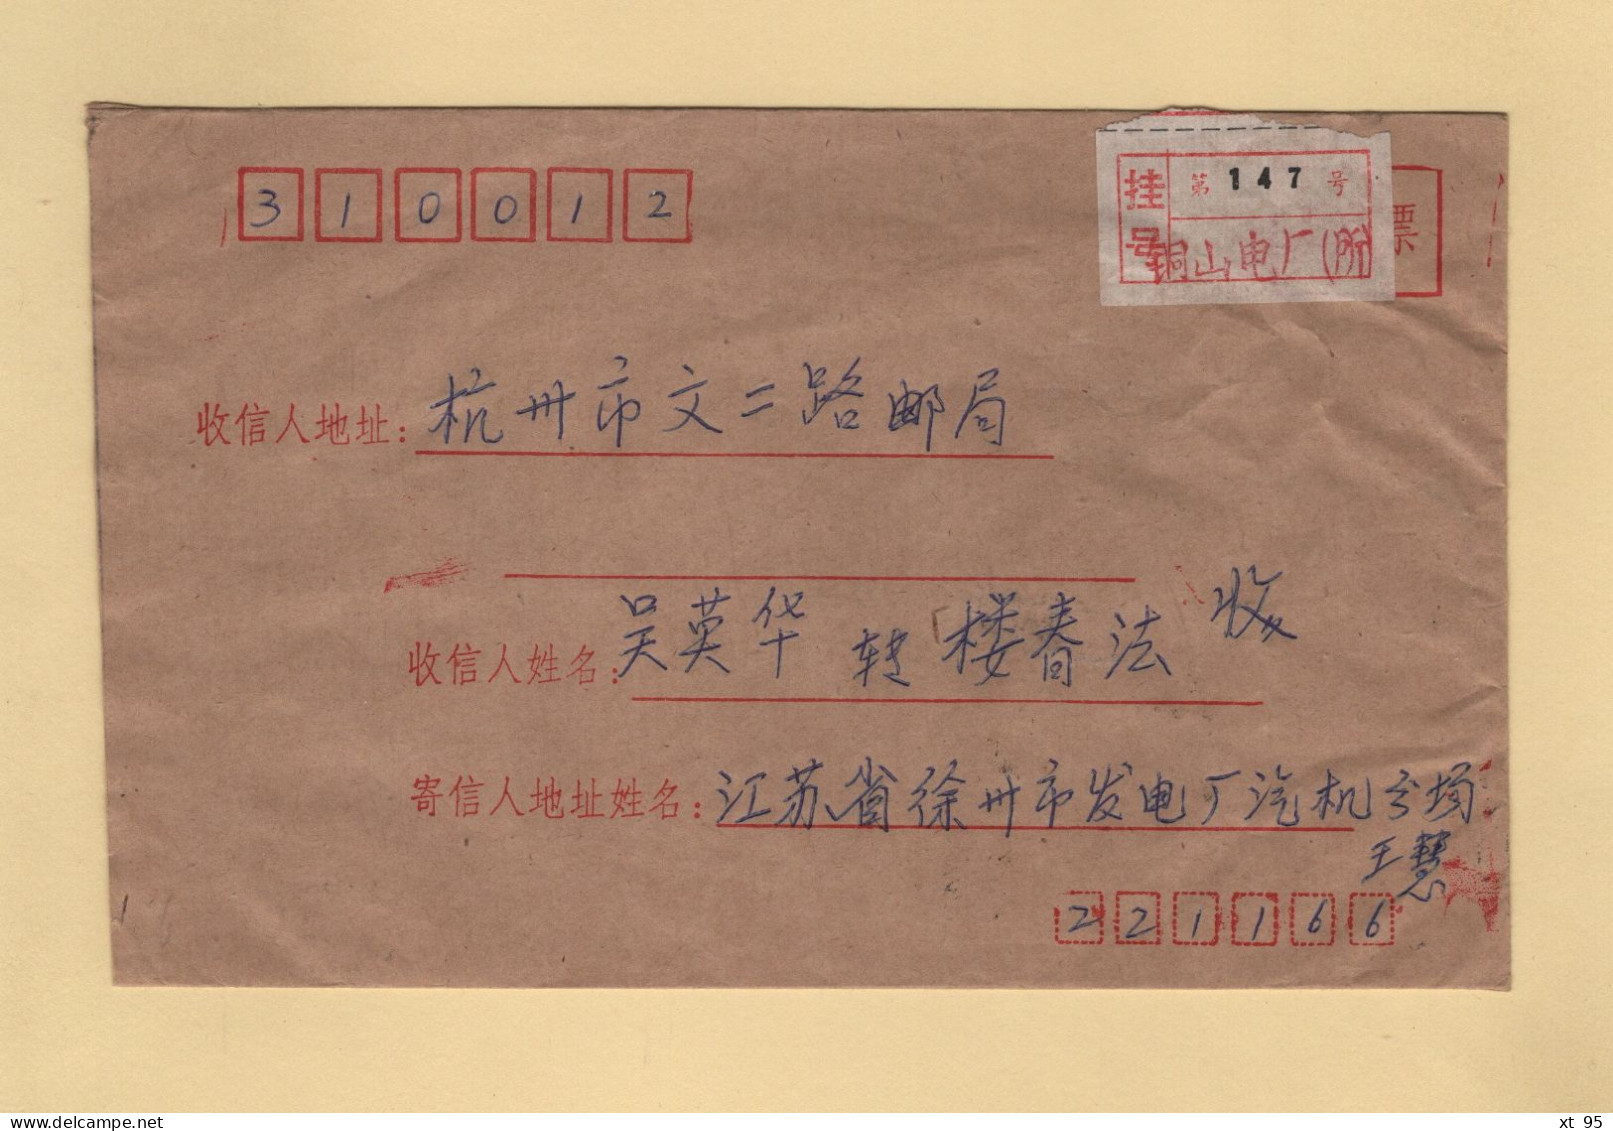 310012
挂号 第 147 号
铜山电厂(所)
票
收信人地址：杭州市文二路邮局
收信人姓名：吴英华 转 楼春法 收
寄信人地址姓名：江苏省徐州市发电厂汽机分场
王慧
221166
delcampe.net
xt_95